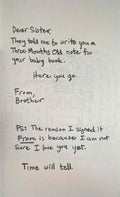 Dear Sister,
They told me to write you a
Three Months Old note for
your baby book.
Here you go.
From,
Brother
PS: The reason I signed it
From is because I am not
sure I love you yet.
Time will tell.